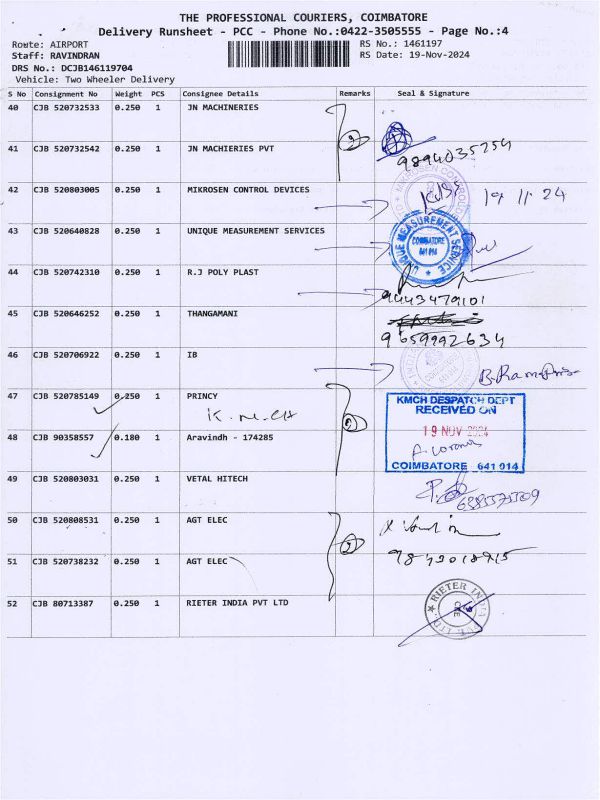 THE PROFESSIONAL COURIERS, COIMBATORE
Delivery Runsheet - PCC - Phone No.:0422-3505555 - Page No.:4
Route: AIRPORT
RS No.: 1461197
Staff: RAVINDRAN
RS Date: 19-Nov-2024
DRS No.: DCJB146119704
Vehicle: Two Wheeler Delivery
S No Consignment No Weight PCS Consignee Details Remarks Seal & Signature
40 CJB 520732533 0.250 1 JN MACHINERIES
41 CJB 520732542 0.250 1 JN MACHIERIES PVT
2
9894035254
42 CJB 520803005 0.250 1 MIKROSEN CONTROL DEVICES
MIKROSEN CONTROL
19 11 24
43 CJB 520640828 0.250 1 UNIQUE MEASUREMENT SERVICES
UNIQUE MEASUREMENT SERVICE
COIMBATORE
641 014
44 CJB 520742310 0.250 1 R.J POLY PLAST
9443479101
45 CJB 520646252 0.250 1 THANGAMANI
9659992634
46 CJB 520706922 0.250 1 IB
47 CJB 520785149 0.250 1 PRINCY
K.M.CH
KMCH DESPATCH DEPT
RECEIVED ON
19 NOV 2024
COIMBATORE 641 014
48 CJB 90358557 0.180 1 Aravindh - 174285
2
49 CJB 520803031 0.250 1 VETAL HITECH
50 CJB 520808531 0.250 1 AGT ELEC
2
51 CJB 520738232 0.250 1 AGT ELEC
52 CJB 80713387 0.250 1 RIETER INDIA PVT LTD
RIETER INDIA PVT. LTD.